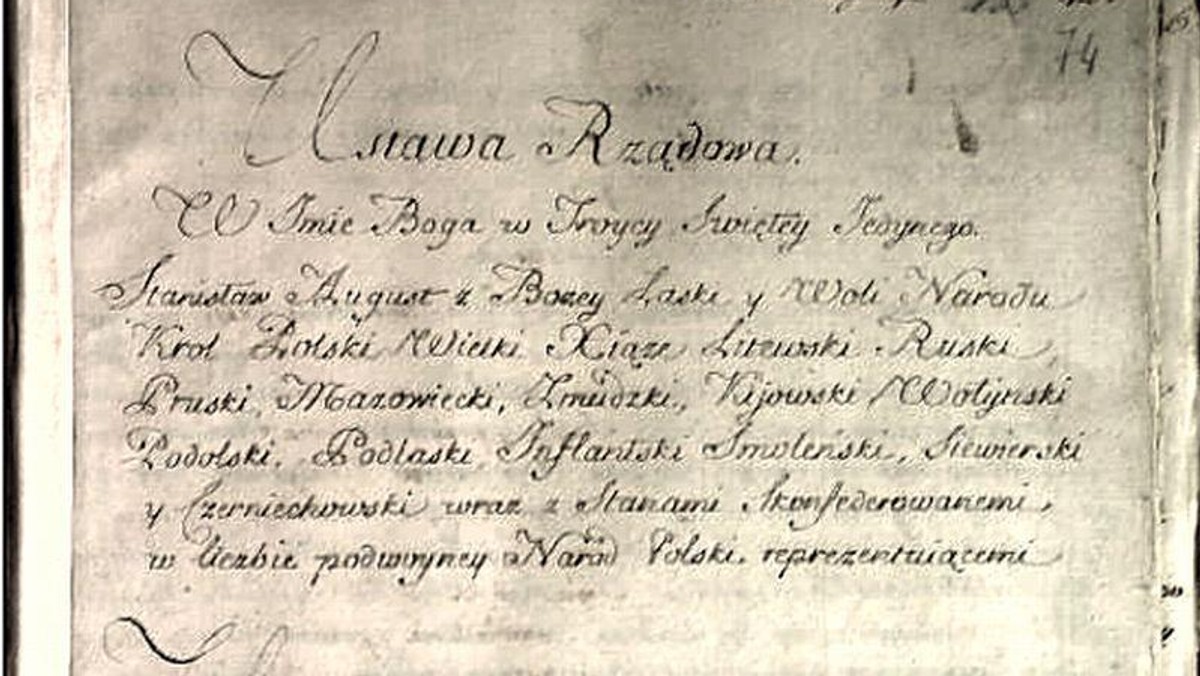 74
Ustawa Rządowa.
W Imie Boga w Troycy Swiętey Jedynego.
Stanisław August z Bozey Łaski y Woli Narodu
Krol Polski Wielki Xiąze Litewski Ruski,
Pruski, Mazowiecki, Zmudzki, Kijowski Wołyński
Podolski, Podlaski, Inflantski Smoleński, Siewierski
y Czerniechowski wraz z Stanami Skonfederowanemi,
w liczbie podwoyney Naród Polski reprezentuiącemi